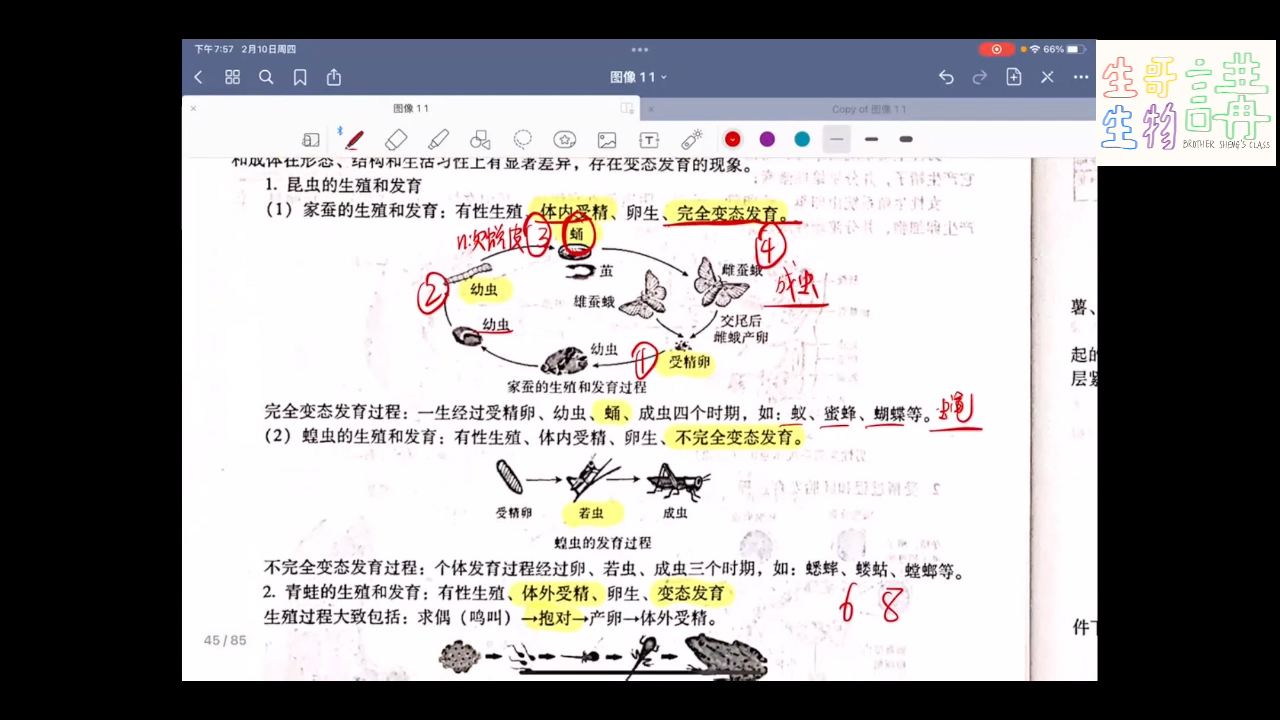 下午7:57 2月10日周四
66%
图像 1 1
图像 1 1
Copy of 图像 1 1
生哥講
生物
BROTHER SHENG'S CLASS
和成体在形态、结构和生活习性上有显著差异,存在变态发育的现象。
1. 昆虫的生殖和发育
(1) 家蚕的生殖和发育:有性生殖、体内受精、卵生、完全变态发育。
n次蜕皮
③
蛹
④
茧
雌蚕蛾
成虫
②
幼虫
雄蚕蛾
幼虫
交尾后
雌蛾产卵
幼虫
①
受精卵
家蚕的生殖和发育过程
完全变态发育过程:一生经过受精卵、幼虫、蛹、成虫四个时期,如:蚁、蜜蜂、蝴蝶等。蝇
(2) 蝗虫的生殖和发育:有性生殖、体内受精、卵生、不完全变态发育。
受精卵 若虫 成虫
蝗虫的发育过程
不完全变态发育过程:个体发育过程经过卵、若虫、成虫三个时期,如:蟋蟀、蝼蛄、螳螂等。
2. 青蛙的生殖和发育:有性生殖、体外受精、卵生、变态发育
6 8
生殖过程大致包括:求偶(鸣叫)→抱对→产卵→体外受精。
45 / 85
薯、
起的
层紧
件下